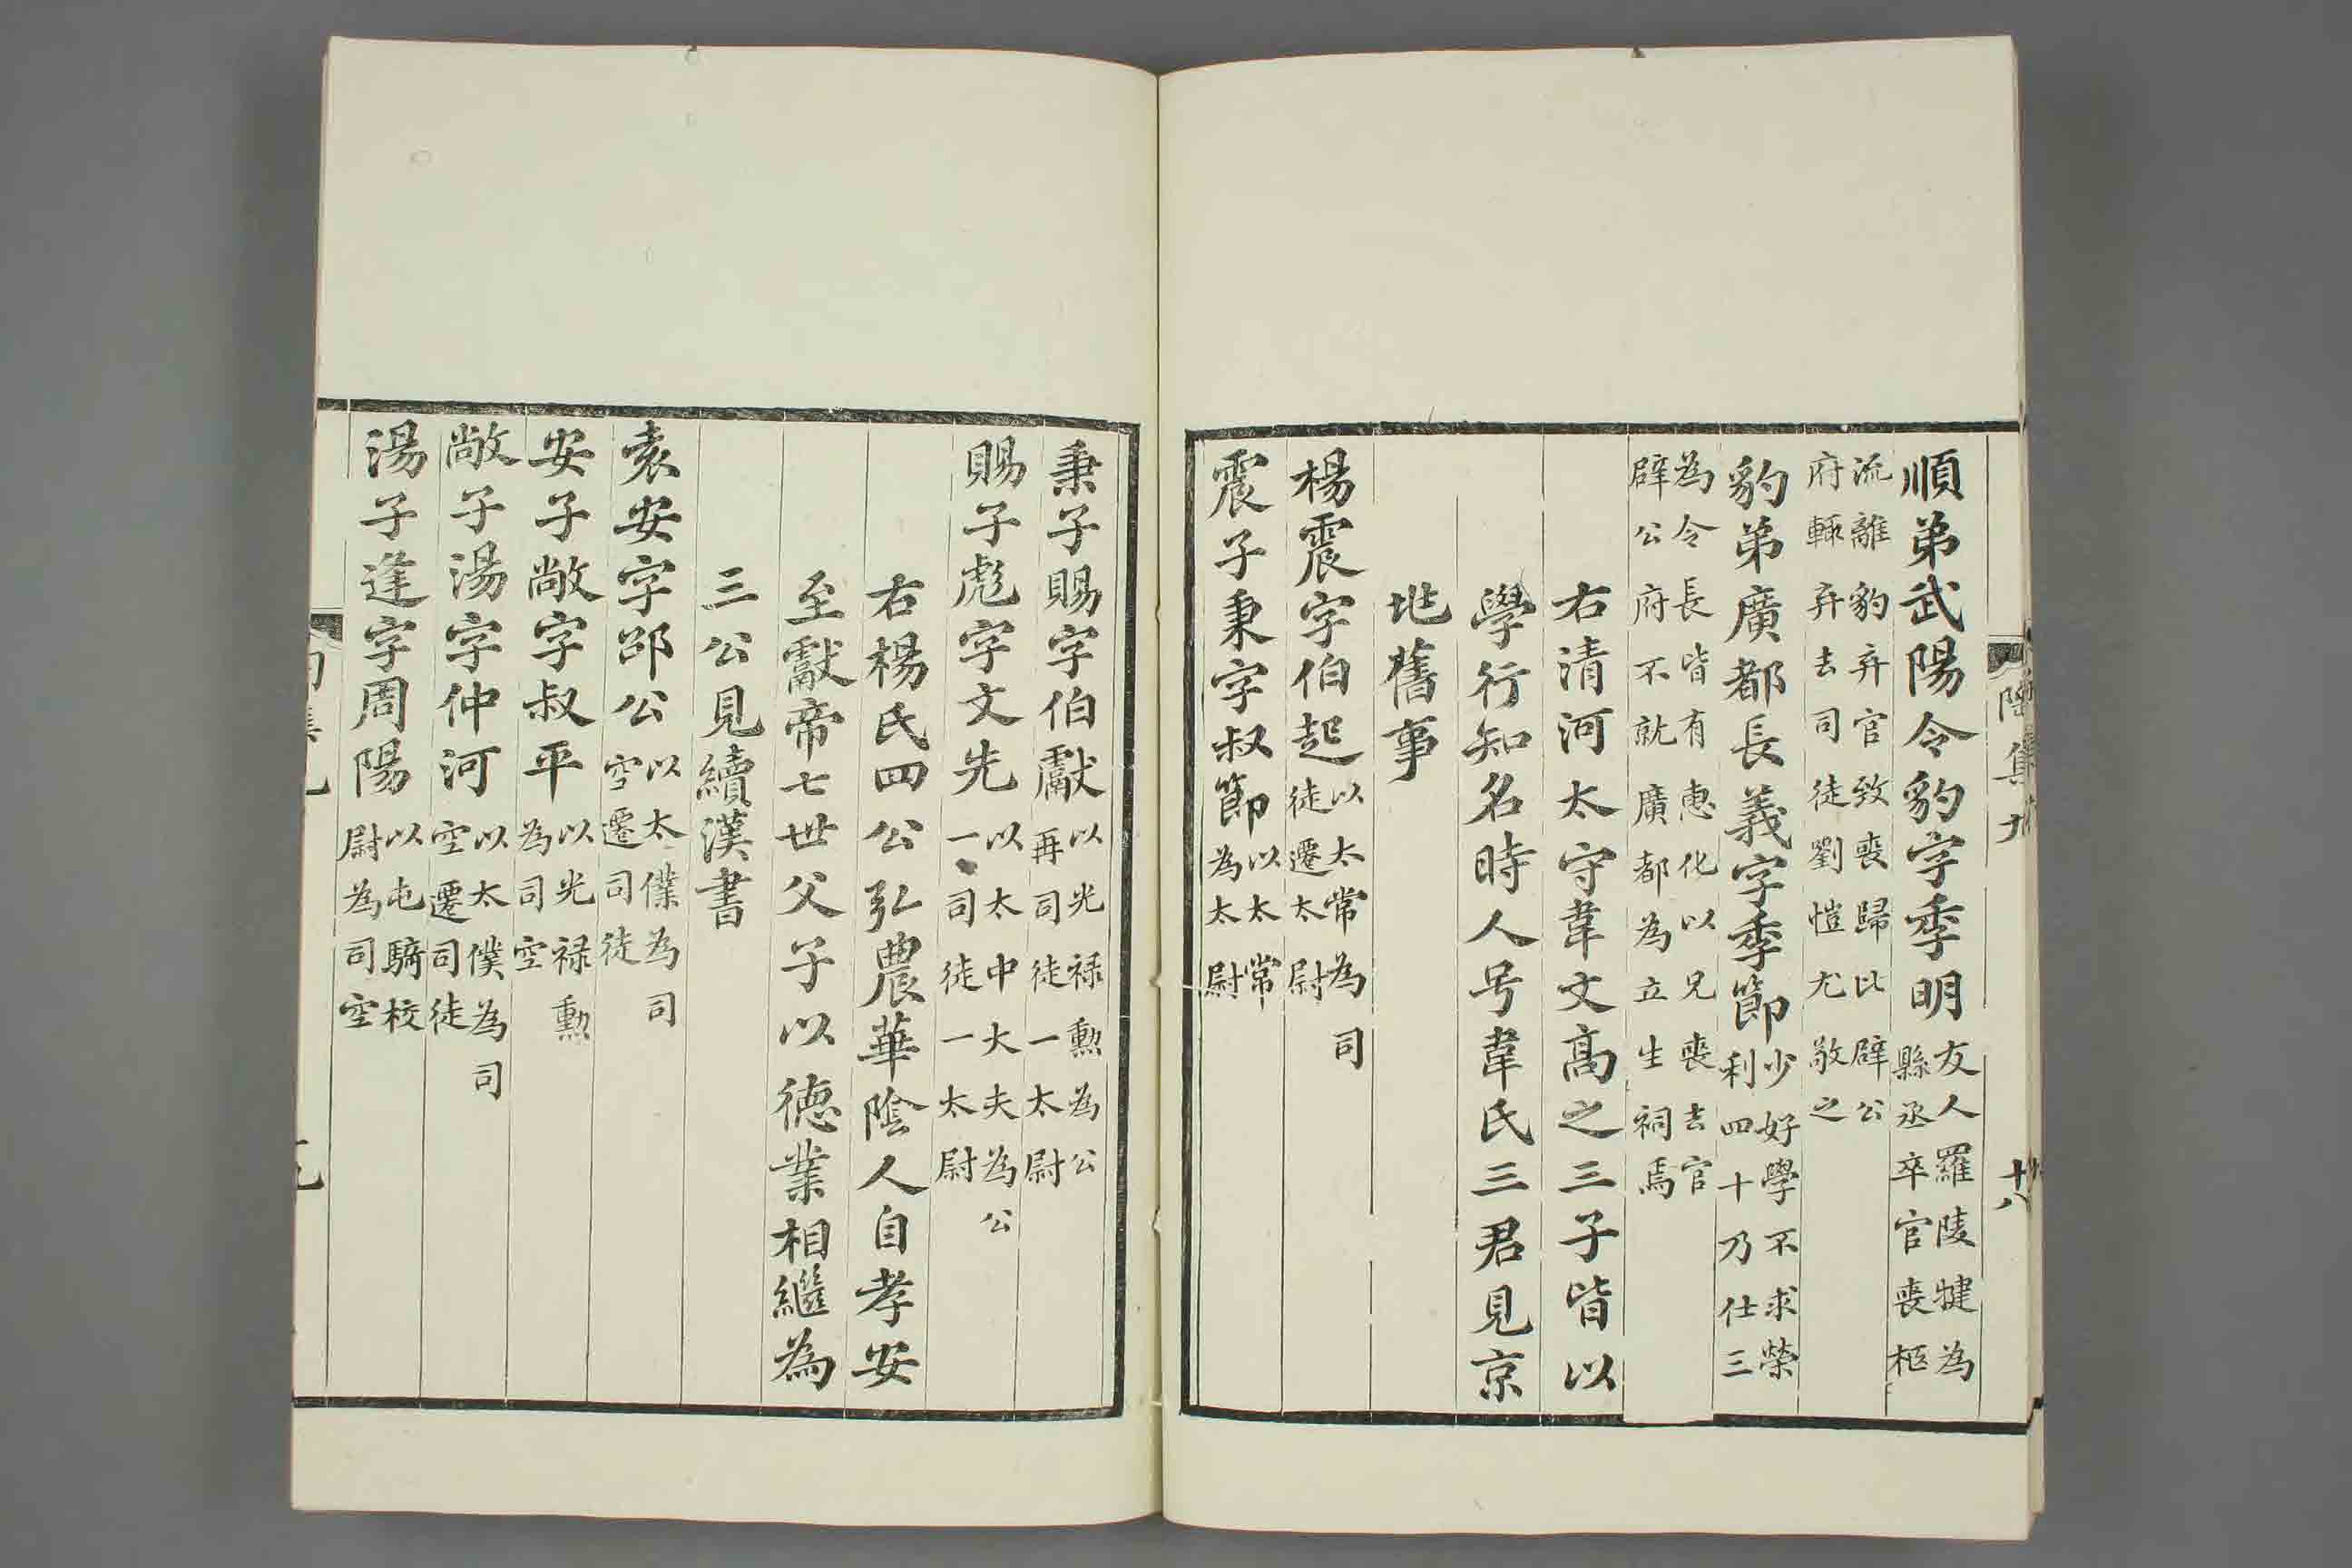 順弟武陽令豹字季明友人羅陵犍為縣丞卒官喪柩
流離豹弃官致喪歸比辟公府輒弃去司徒劉愷尤敬之
豹弟廣都長義字季節少好學不求榮利四十乃仕三
為令長皆有惠化以兄喪去官辟公府不就廣都為立生祠焉
右清河太守韋文高之三子皆以
學行知名時人号韋氏三君見京
地舊事
楊震字伯起以太常為司徒遷太尉
震子秉字叔節以太常為太尉
秉子賜字伯獻以光禄勳為公再司徒一太尉
賜子彪字文先以太中大夫為公一司徒一太尉
右楊氏四公弘農華陰人自孝安
至獻帝七世父子以德業相繼為
三公見續漢書
袁安字邵公以太僕為司空遷司徒
安子敞字叔平以光禄勳為司空
敞子湯字仲河以太僕為司空遷司徒
湯子逢字周陽以屯騎校尉為司空
陶集九
十八